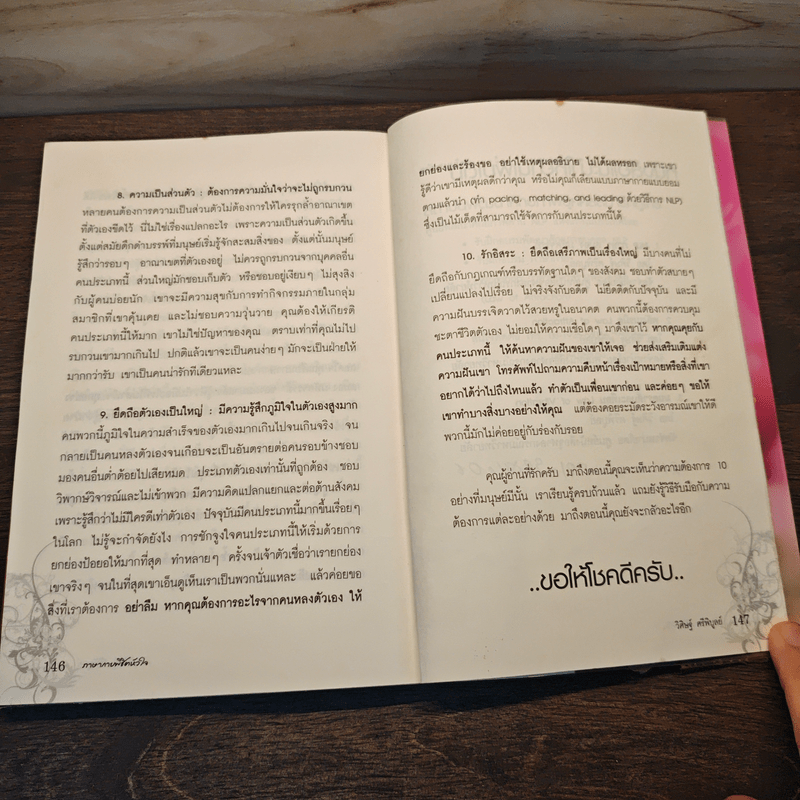 8. ความเป็นส่วนตัว : ต้องการความมั่นใจว่าจะไม่ถูกรบกวน
หลายคนต้องการความเป็นส่วนตัวไม่ต้องการให้ใครรุกล้ำอาณาเขต
ที่ตัวเองขีดไว้ นี่ไม่ใช่เรื่องแปลกอะไร เพราะความเป็นส่วนตัวเกิดขึ้น
ตั้งแต่สมัยดึกดำบรรพ์ที่มนุษย์เริ่มรู้จักสะสมสิ่งของ ตั้งแต่นั้นมนุษย์
รู้สึกว่ารอบๆ อาณาเขตที่ตัวเองอยู่ ไม่ควรถูกรบกวนจากบุคคลอื่น
คนประเภทนี้ ส่วนใหญ่มักชอบเก็บตัว หรือชอบอยู่เงียบๆ ไม่สุงสิง
กับผู้คนบ่อยนัก เขาจะมีความสุขกับการทำกิจกรรมภายในกลุ่ม
สมาชิกที่เขาคุ้นเคย และไม่ชอบความวุ่นวาย คุณต้องให้เกียรติ
คนประเภทนี้ให้มาก เขาไม่ใช่ปัญหาของคุณ ตราบเท่าที่คุณไม่ไป
รบกวนเขามากเกินไป ปกติแล้วเขาจะเป็นคนง่ายๆ มักจะเป็นฝ่ายให้
มากกว่ารับ เขาเป็นคนน่ารักทีเดียวแหละ
9. ยึดถือตัวเองเป็นใหญ่ : มีความรู้สึกภูมิใจในตัวเองสูงมาก
คนพวกนี้ภูมิใจในความสำเร็จของตัวเองมากเกินไปจนเกินจริง จน
กลายเป็นคนหลงตัวเองจนเกือบจะเป็นอันตรายต่อคนรอบข้างชอบ
มองคนอื่นต่ำต้อยไปเสียหมด ประเภทตัวเองเท่านั้นที่ถูกต้อง ชอบ
วิพากษ์วิจารณ์และไม่เข้าพวก มีความคิดแปลกแยกและต่อต้านสังคม
เพราะรู้สึกว่าไม่มีใครดีเท่าตัวเอง ปัจจุบันมีคนประเภทนี้มากขึ้นเรื่อยๆ
ในโลก ไม่รู้จะกำจัดยังไง การชักจูงใจคนประเภทนี้ให้เริ่มด้วยการ
ยกย่องป้อยอให้มากที่สุด ทำหลายๆ ครั้งจนเจ้าตัวเชื่อว่าเรายกย่อง
เขาจริงๆ จนในที่สุดเขาเอ็นดูเห็นเราเป็นพวกนั่นแหละ แล้วค่อยขอ
สิ่งที่เราต้องการ อย่าลืม หากคุณต้องการอะไรจากคนหลงตัวเอง ให้
146 ภาษากายพิชิตหัวใจ
ยกย่องและร้องขอ อย่าใช้เหตุผลอธิบาย ไม่ได้ผลหรอก เพราะเขา
รู้ดีว่าเขามีเหตุผลดีกว่าคุณ หรือไม่คุณก็เลียนแบบภาษากายแบบยอม
ตามแล้วนำ (ทำ pacing, matching, and leading ด้วยวิธีการ NLP)
ซึ่งเป็นไม้เด็ดที่สามารถใช้จัดการกับคนประเภทนี้ได้
10. รักอิสระ : ยึดถือเสรีภาพเป็นเรื่องใหญ่ มีบางคนที่ไม่
ยึดถือกับกฎเกณฑ์หรือบรรทัดฐานใดๆ ของสังคม ชอบทำตัวสบายๆ
เปลี่ยนแปลงไปเรื่อย ไม่จริงจังกับอดีต ไม่ยึดติดกับปัจจุบัน และมี
ความฝันบรรเจิดวาดไว้สวยหรูในอนาคต คนพวกนี้ต้องการควบคุม
ชะตาชีวิตตัวเอง ไม่ยอมให้ความเชื่อใดๆ มาดึงเขาไว้ หากคุณคุยกับ
คนประเภทนี้ ให้ค้นหาความฝันของเขาให้เจอ ช่วยส่งเสริมเติมแต่ง
ความฝันเขา โทรศัพท์ไปถามความคืบหน้าเรื่องเป้าหมายหรือสิ่งที่เขา
อยากได้ว่าไปถึงไหนแล้ว ทำตัวเป็นเพื่อนเขาก่อน และค่อยๆ ขอให้
เขาทำบางสิ่งบางอย่างให้คุณ แต่ต้องคอยระมัดระวังอารมณ์เขาให้ดี
พวกนี้มักไม่ค่อยอยู่กับร่องกับรอย
คุณผู้อ่านที่รักครับ มาถึงตอนนี้คุณจะเห็นว่าความต้องการ 10
อย่างที่มนุษย์มีนั้น เราเรียนรู้ครบถ้วนแล้ว แถมยังรู้วิธีรับมือกับความ
ต้องการแต่ละอย่างด้วย มาถึงตอนนี้คุณยังจะกลัวอะไรอีก
..ขอให้โชคดีครับ..
วิศิษฐ์ ศรีพิบูลย์ 147